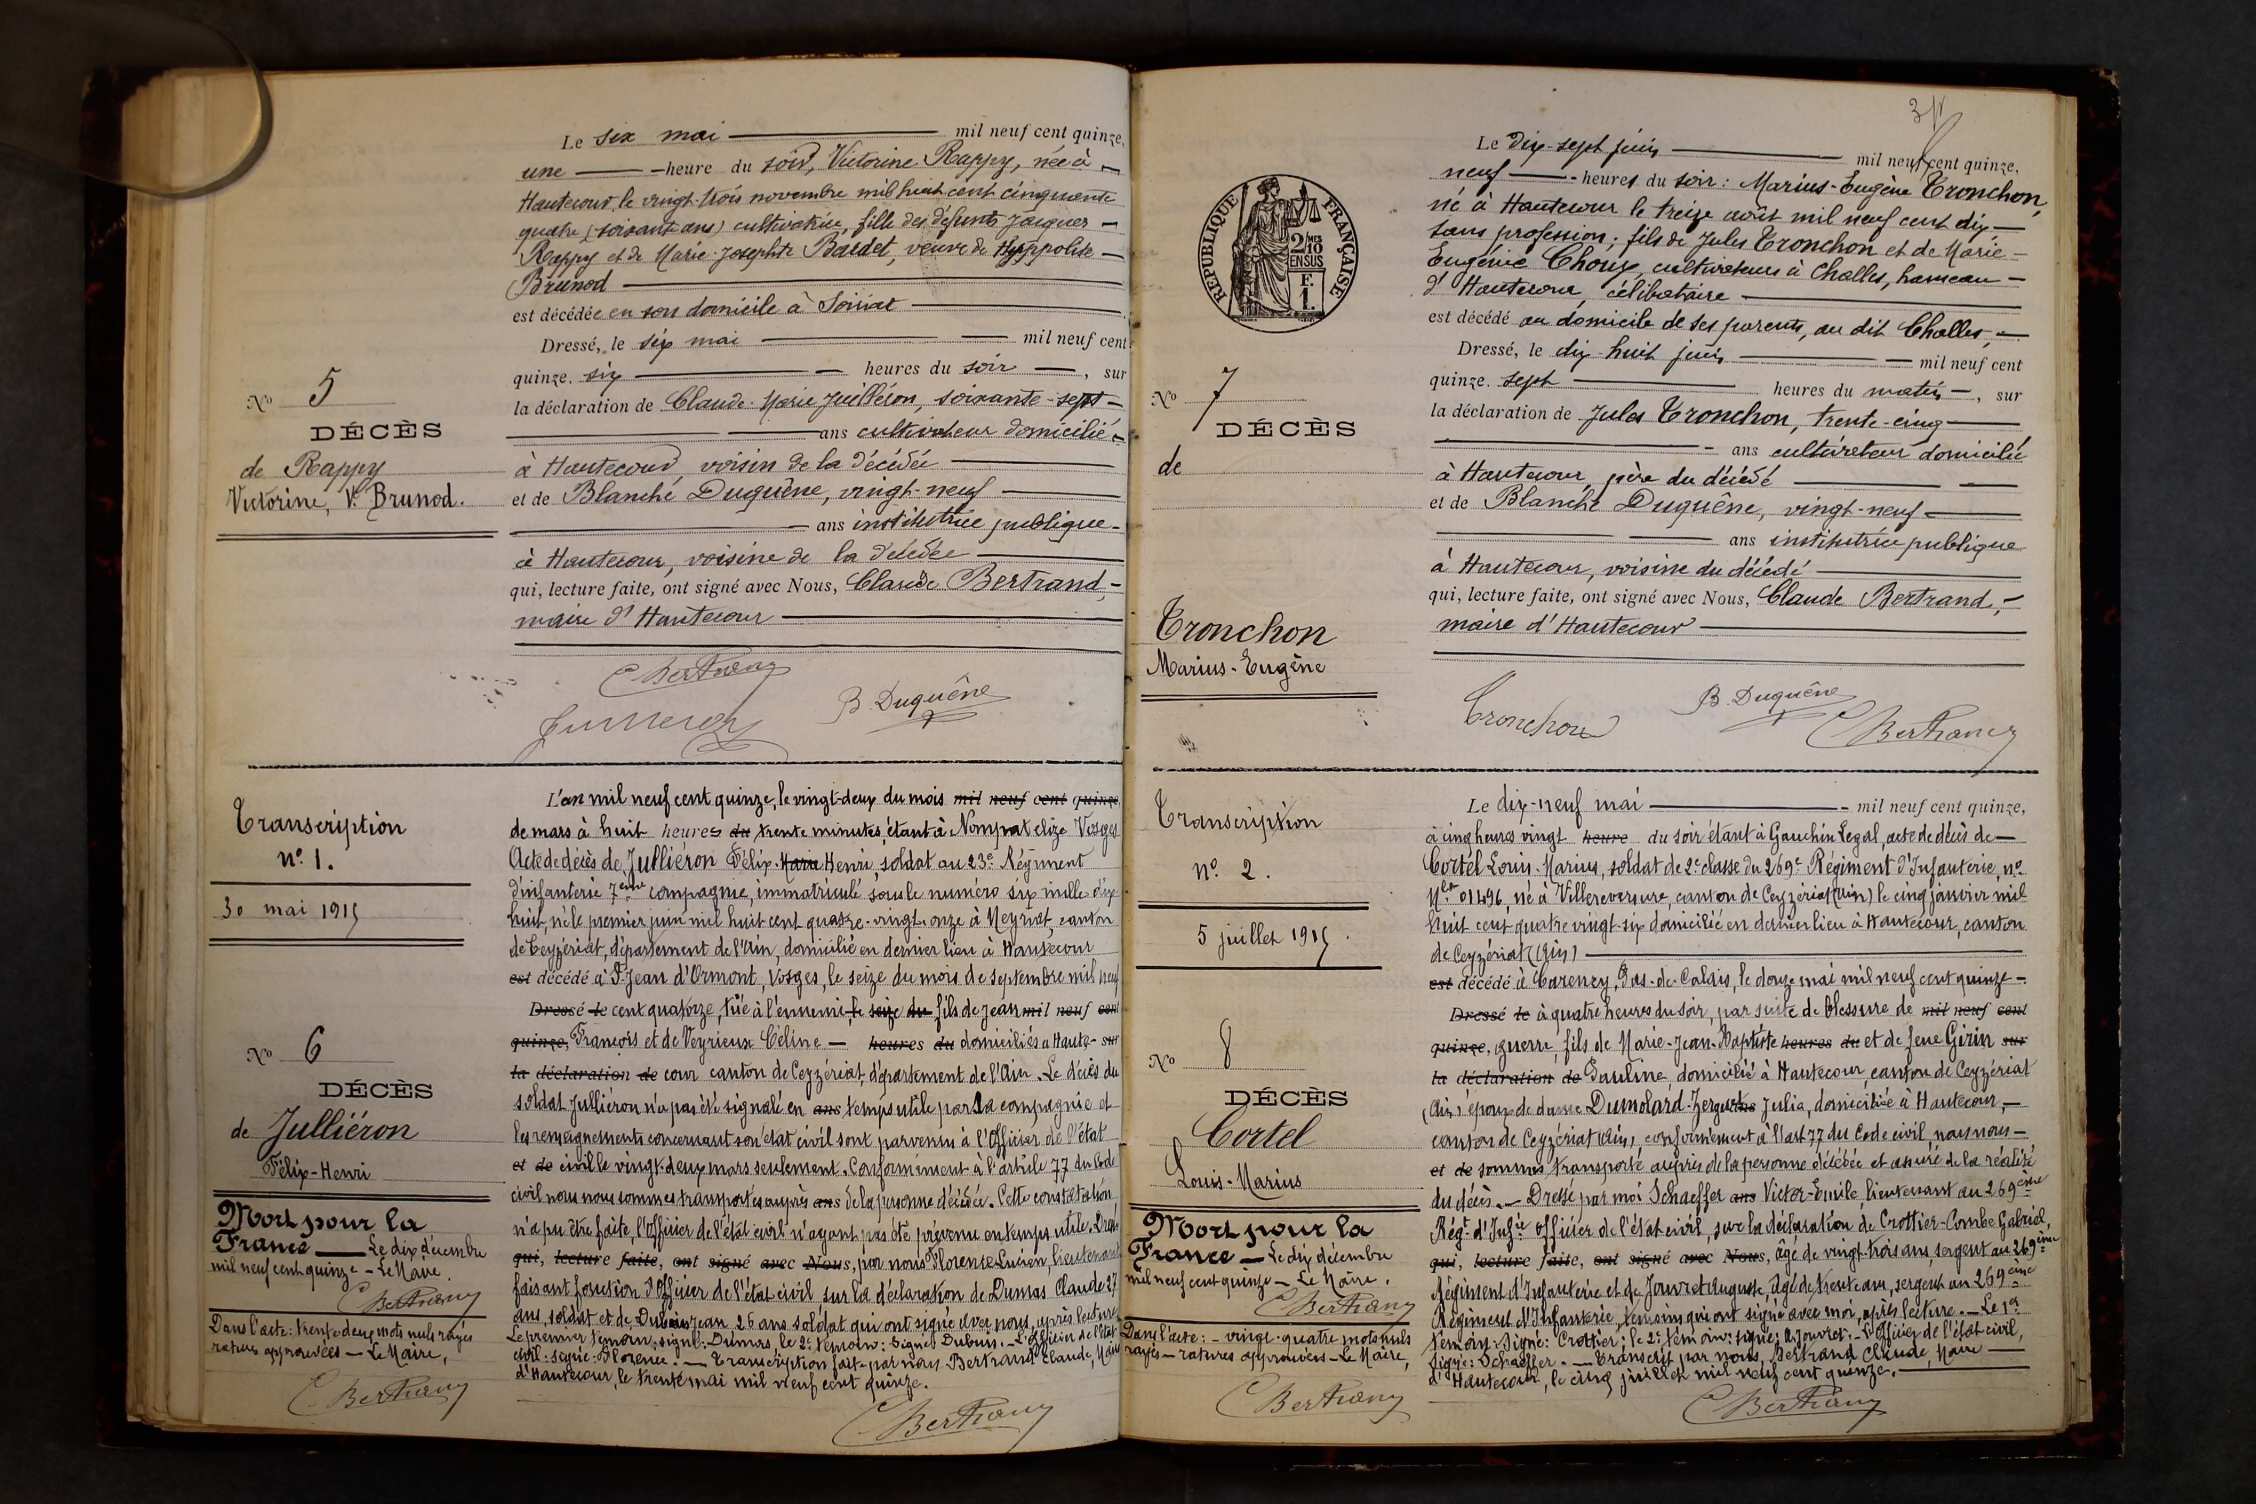 Le six mai mil neuf cent quinze,
une heure du soir, Victorine Rappy, née à
Hautecour, le vingt-trois novembre mil huit cent cinquante
quatre (soixante ans) cultivatrice, fille des défunts Jacques
Rappy et de Marie-Josephte Bardet, veuve de Hyppolite
Brunod
est décédée en son domicile à Soiriat
Dressé, le six mai mil neuf cent
quinze, six heures du soir, sur
la déclaration de Claude-Marie Juilléron, soixante-sept
ans cultivateur domicilié
à Hautecour voisin de la décédée
et de Blanche Duquêne, vingt-neuf
ans institutrice publique
à Hautecour, voisine de la décédée
qui, lecture faite, ont signé avec Nous, Claude Bertrand,
maire d'Hautecour
C Bertrand
B. Duquêne
No 5
DÉCÈS
de Rappy
Victorine, Ve Brunod.
Transcription
no 1.
30 mai 1915
No 6
DÉCÈS
de Julliéron
Félix-Henri
Mort pour la
France — Le dix décembre
mil neuf cent quinze — Le Maire.
C Bertrand
Dans l'acte: trente deux mots nuls rayés
ratures approuvées — Le Maire,
C Bertrand
L'an mil neuf cent quinze, le vingt-deux du mois mil neuf cent quinze
de mars à huit heures du trente minutes, étant à Nompatelize Vosges
Acte de décès de Julliéron Félix-Marie Henri, soldat au 23e Régiment
d'infanterie 7ème compagnie, immatriculé sous le numéro six mille dix
huit, né le premier juin mil huit cent quatre-vingt-onze à Neyriat, canton
de Ceyzériat, département de l'Ain, domicilié en dernier lieu à Hautecour
est décédé à St-Jean d'Ormont, Vosges, le seize du mois de septembre mil neuf
Dressé le cent quatorze, tué à l'ennemi, le seize du fils de Jean mil neuf cent
quinze, François et de Veyrieux Céline — heures du domiciliés à Haute- sur
la déclaration de cour canton de Ceyzériat, département de l'Ain. Le décès du
soldat Julliéron n'a pas été signalé en ans temps utile par sa compagnie et
les renseignements concernant son état civil sont parvenus à l'Officier de l'état
et de civil le vingt-deux mars seulement. Conformément à l'article 77 du Code
civil nous nous sommes transportés auprès ans de la personne décédée. Cette constatation
n'a pu être faite, l'Officier de l'état civil n'ayant pas été prévenu en temps utile. Dressé
qui, lecture faite, ont signé avec Nous, par nous Florence Lucien, lieutenant
faisant fonction d'Officier de l'état civil sur la déclaration de Dumas Claude 27
ans, soldat et de Dubuis Jean 26 ans soldat qui ont signé avec nous, après lecture
Le premier témoin, signé: Dumas, le 2e témoin: signé Dubuis. — L'Officier de l'état
civil: signé: Florence. — Transcription faite par nous Bertrand Claude, Maire
d'Hautecour, le trente mai mil neuf cent quinze.
C Bertrand
Le dix-sept juin mil neuf cent quinze,
neuf heures du soir: Marius-Eugène Tronchon,
né à Hautecour le treize août mil neuf cent dix
sans profession; fils de Jules Tronchon et de Marie
Eugénie Choux, cultivateurs à Challes, hameau
d'Hautecour, célibataire
est décédé au domicile de ses parents, au dit Challes,
Dressé, le dix-huit juin mil neuf cent
quinze. sept heures du matin, sur
la déclaration de Jules Tronchon, trente-cinq
ans cultivateur domicilié
à Hautecour, père du décédé
et de Blanche Duquêne, vingt-neuf
ans institutrice publique
à Hautecour, voisine du décédé
qui, lecture faite, ont signé avec Nous, Claude Bertrand,
maire d'Hautecour
Tronchon
B. Duquêne
C Bertrand
RÉPUBLIQUE FRANÇAISE
2/MES
10
EN SUS
F.
1.
No 7
DÉCÈS
de
Tronchon
Marius-Eugène
Transcription
no 2.
5 juillet 1915.
No 8
DÉCÈS
Cortel
Louis-Marius
Mort pour la
France — Le dix décembre
mil neuf cent quinze — Le Maire.
C Bertrand
Dans l'acte: — vingt-quatre mots nuls
rayés — ratures approuvées — Le Maire,
C Bertrand
Le dix-neuf mai mil neuf cent quinze,
à cinq heures vingt heure du soir étant à Gauchin Legal, acte de décès de
Cortel Louis-Marius, soldat de 2e classe du 269e Régiment d'Infanterie, no
Mle 01496, né à Villereversure, canton de Ceyzériat (Ain) le cinq janvier mil
huit cent quatre vingt-six domicilié en dernier lieu à Hautecour, canton
de Ceyzériat (Ain)
est décédé à Carency, Pas-de-Calais, le douze mai mil neuf cent quinze
Dressé le à quatre heures du soir, par suite de blessure de mil neuf cent
quinze, guerre, fils de Marie-Jean-Baptiste heures du et de feue Girin sur
la déclaration de Pauline, domicilié à Hautecour, canton de Ceyzériat
(Ain) époux de dame Dumolard-Zerguet ans Julia, domiciliée à Hautecour,
canton de Ceyzériat (Ain), conformément à l'art 77 du Code civil, nous nous
et de sommes transporté auprès de la personne décédée et assuré de la réalité
du décès. — Dressé par moi Schaeffer ans Victor-Emile, lieutenant au 269ème
Régt d'Infie officier de l'état civil, sur la déclaration de Crottier-Combe Gabriel,
qui, lecture faite, ont signé avec Nous, âgé de vingt-trois ans, sergent au 269ème
Régiment d'Infanterie et de Jouvret Auguste, âgé de trente ans, sergent au 269ème
Régiment d'Infanterie, témoins qui ont signé avec moi, après lecture. — Le 1er
témoin: Signé: Crottier; le 2e témoin: signé: A. Jouvret. — L'Officier de l'état civil,
signé: Schaeffer. — Transcrit par nous, Bertrand Claude, Maire
d'Hautecour, le cinq juillet mil neuf cent quinze.
C Bertrand